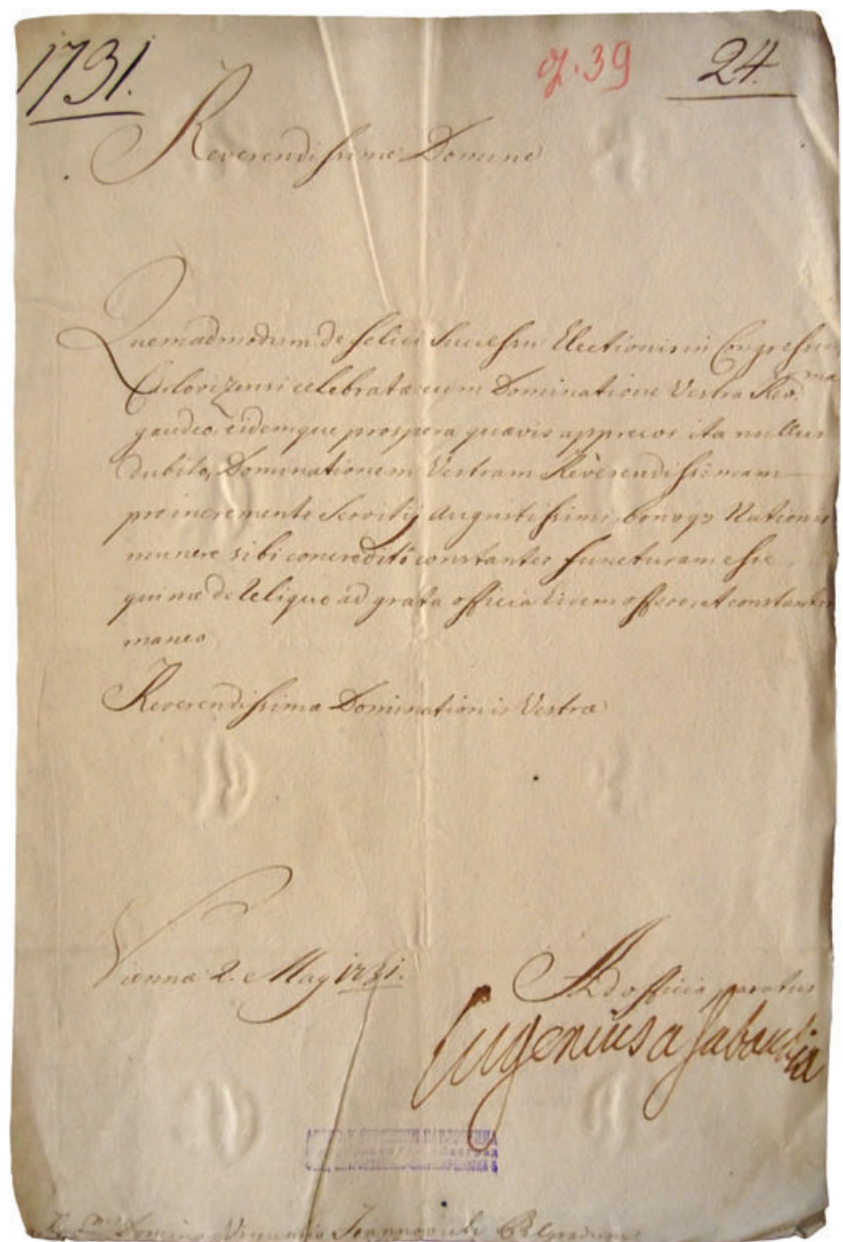 1731.
24.
Reverendissime Domine
Quemadmodum de felici Successu Electionis in Congressu
Carlovizensi celebratæ cum Dominatione Vestra Rev.ma
gaudeo, eidemque prospera quævis apprecor ita nullus
dubito, Dominationem Vestram Reverendissimam
pro incremento Servitij Augustissimi, bonoq3 Nationis
munere sibi concredito constanter functuram esse
qui me de relique ad grata officia Eidem offerens constanter
maneo
Reverendissimæ Dominationis Vestræ
Viennæ 2. May 1731.
Ad officia paratus
Eugenius a Sabaudia
Domino Vincentio Joannovichi Belgradum